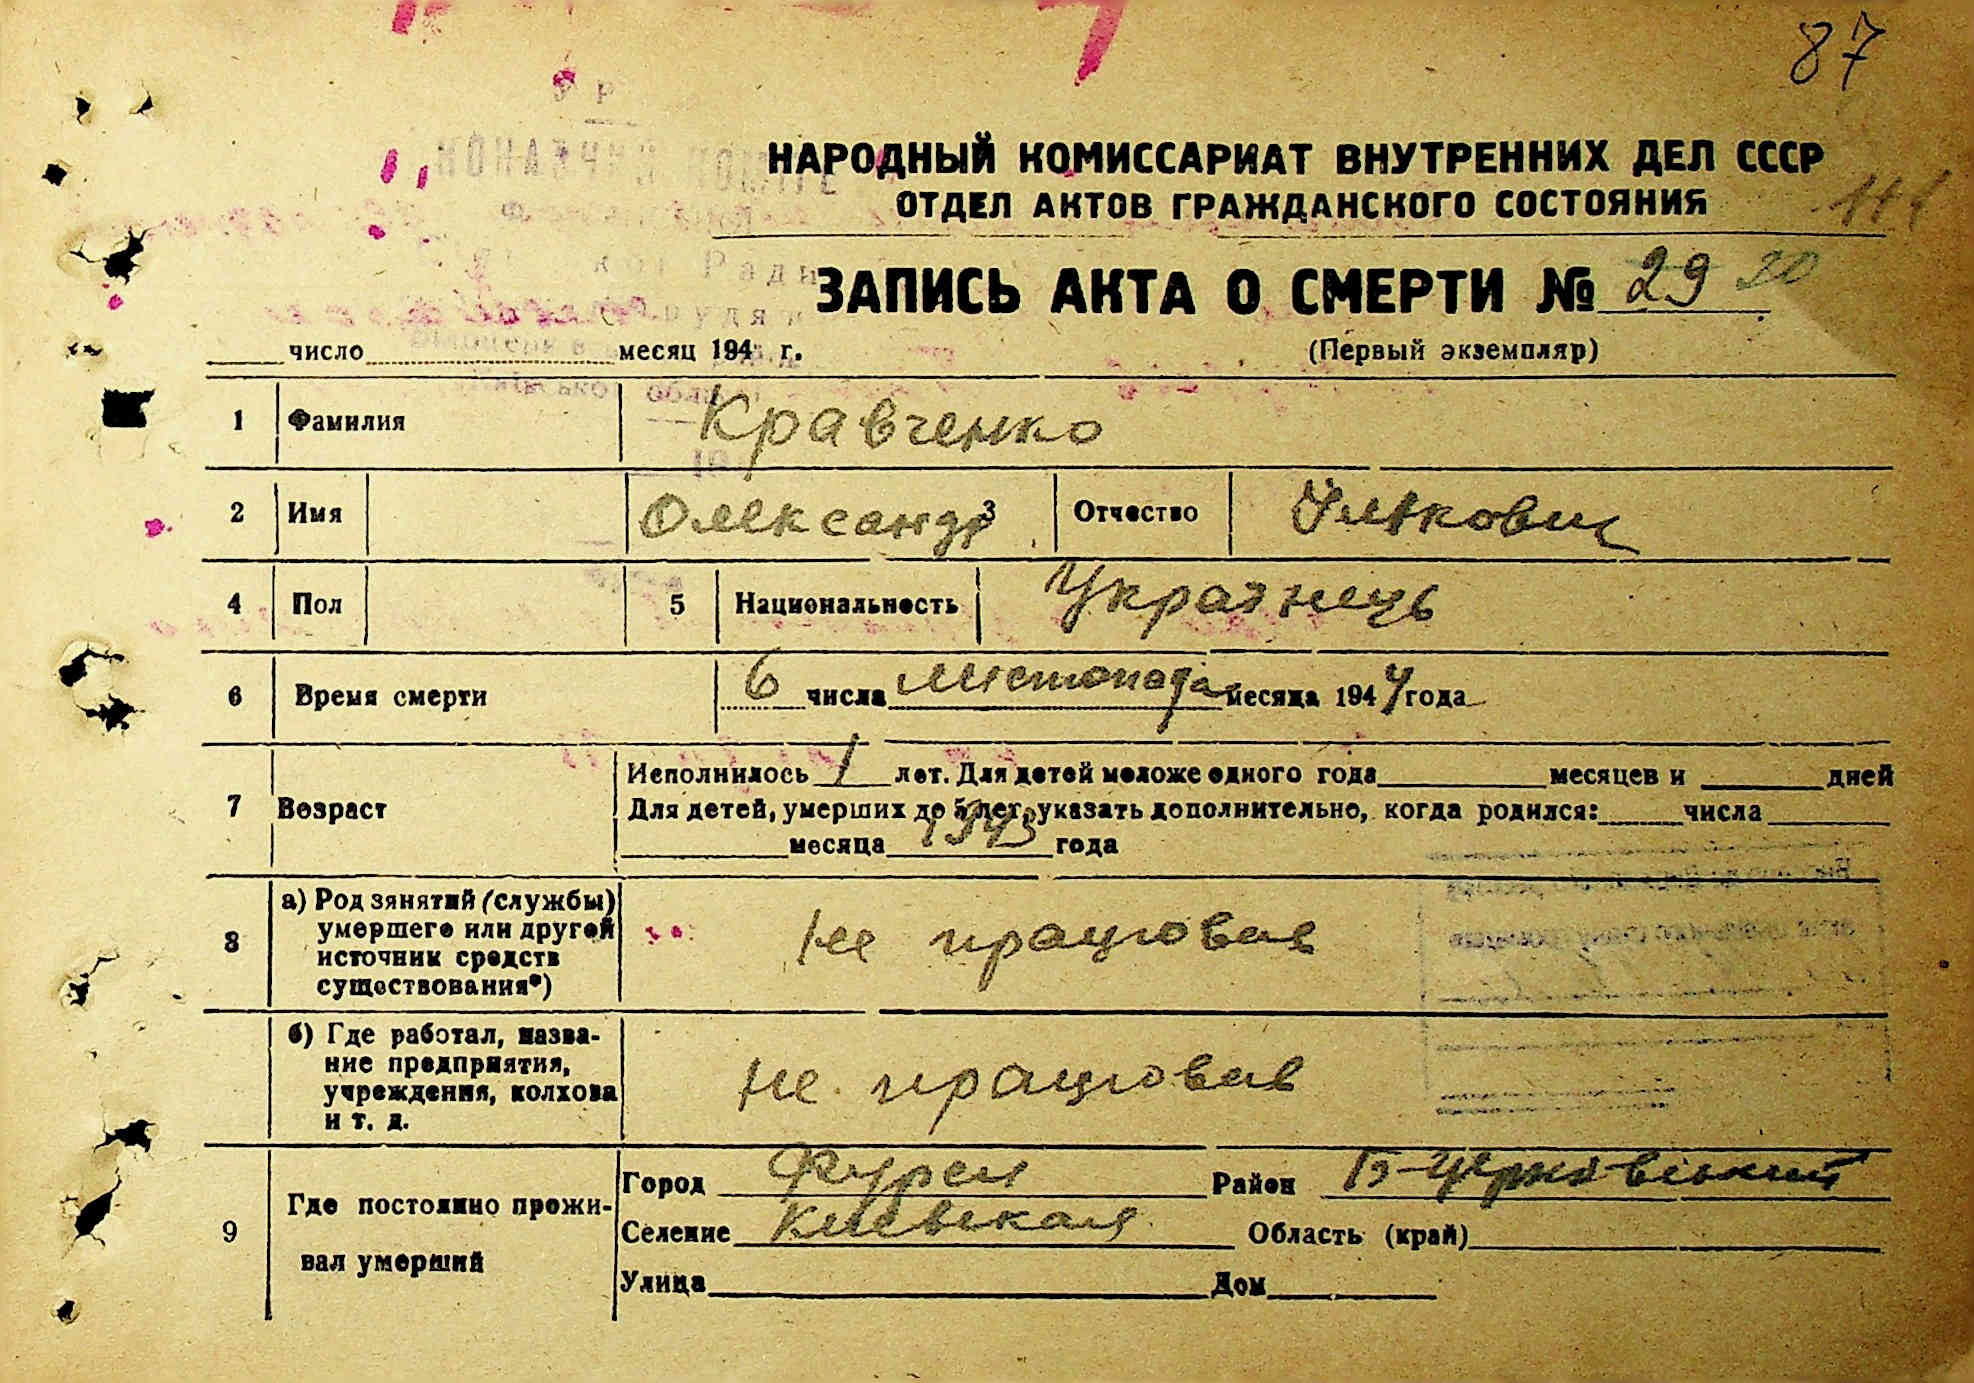 87
НАРОДНЫЙ КОМИССАРИАТ ВНУТРЕННИХ ДЕЛ СССР
ОТДЕЛ АКТОВ ГРАЖДАНСКОГО СОСТОЯНИЯ
ЗАПИСЬ АКТА О СМЕРТИ № 29 20
число месяц 194 г. (Первый экземпляр)
1 Фамилия Кравченко
2 Имя Олександр 3 Отчество
4 Пол 5 Национальность Українець
6 Время смерти 6 числа листопада месяца 1944 года
Исполнилось 1 лет. Для детей моложе одного года месяцев и дней
7 Возраст Для детей, умерших до 5 лет, указать дополнительно, когда родился: числа
месяца 1943 года
8 а) Род занятий (службы)
умершего или другой
источник средств
существования*)
не працював
б) Где работал, назва-
ние предприятия,
учреждения, колхоза
и т. д.
не працював
9 Где постоянно прожи-
вал умерший
Город Фурси Район Б-Церковський
Селение Киевская Область (край)
Улица Дом